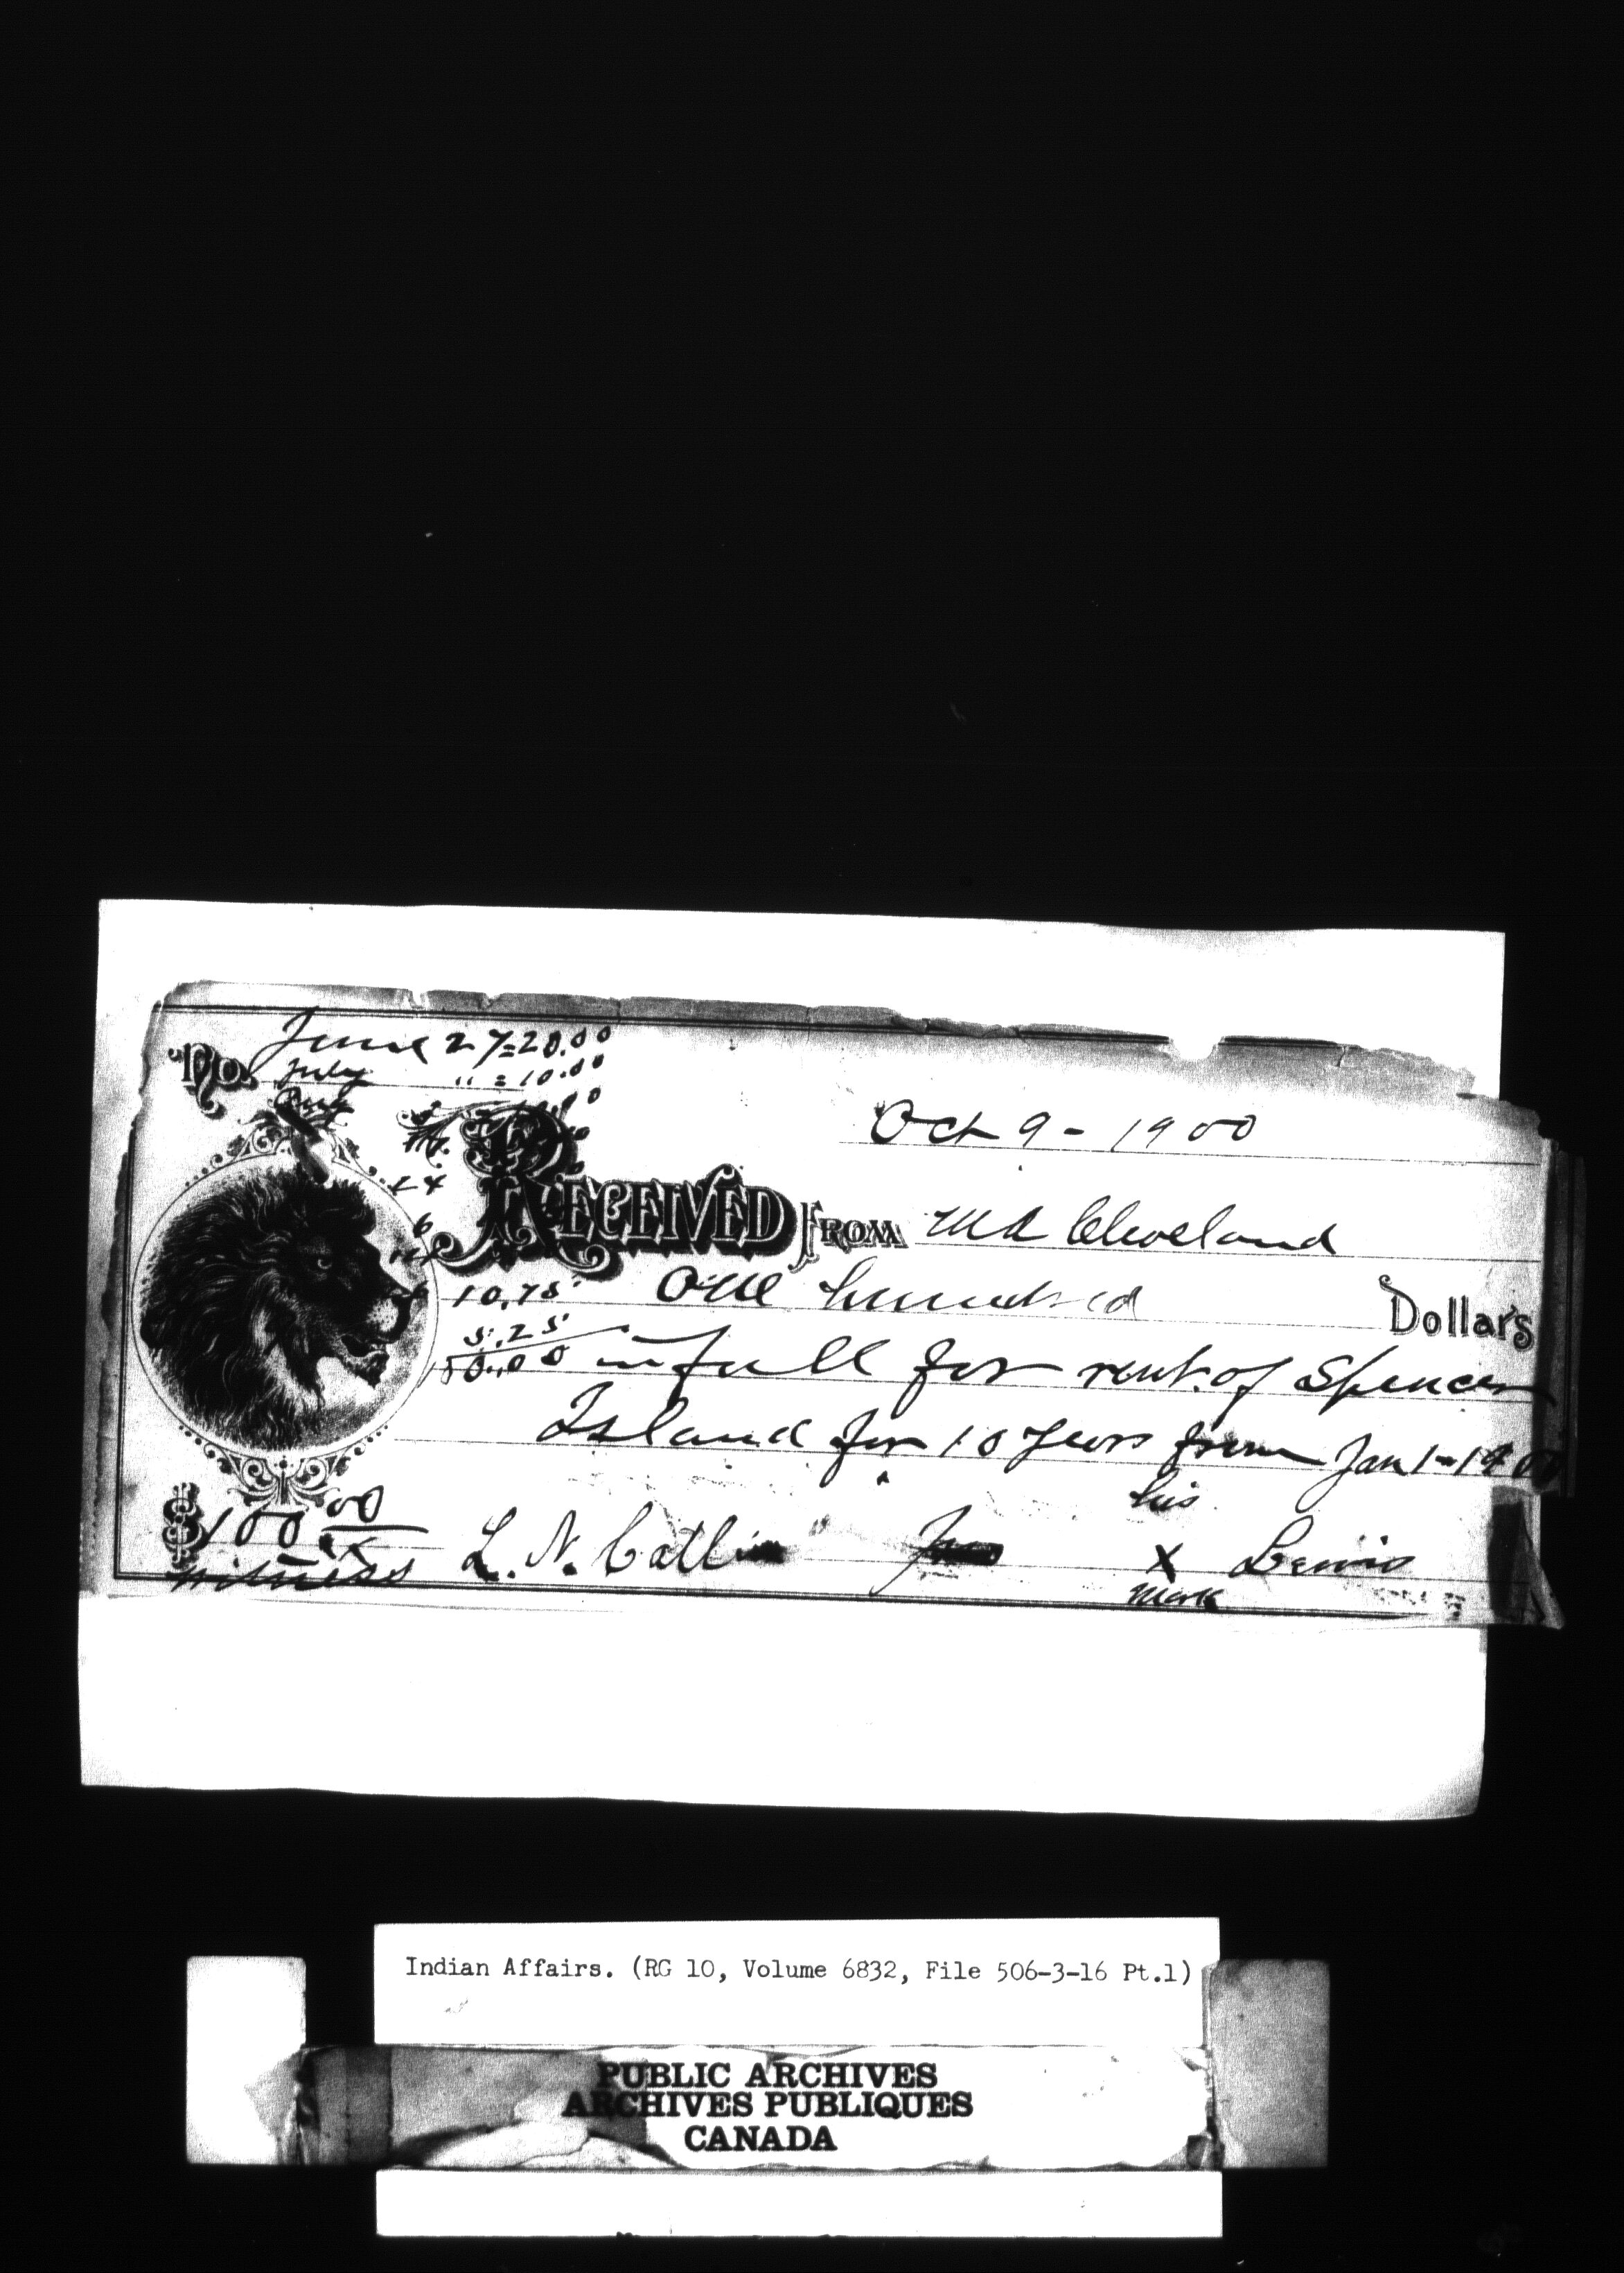 June 27=20.00
No. July " = 10.00
Aug
Oct 9 - 1900
RECEIVED FROM M A Cleveland
10,75 One hundred Dollars
5.25
50.00 in full for rent of Spencer
Island for 10 years from Jan 1-1900
his
$100 00
witness L. N. Catlin X Lewis
mark
Indian Affairs. (RG 10, Volume 6832, File 506-3-16 Pt.1)
PUBLIC ARCHIVES
ARCHIVES PUBLIQUES
CANADA